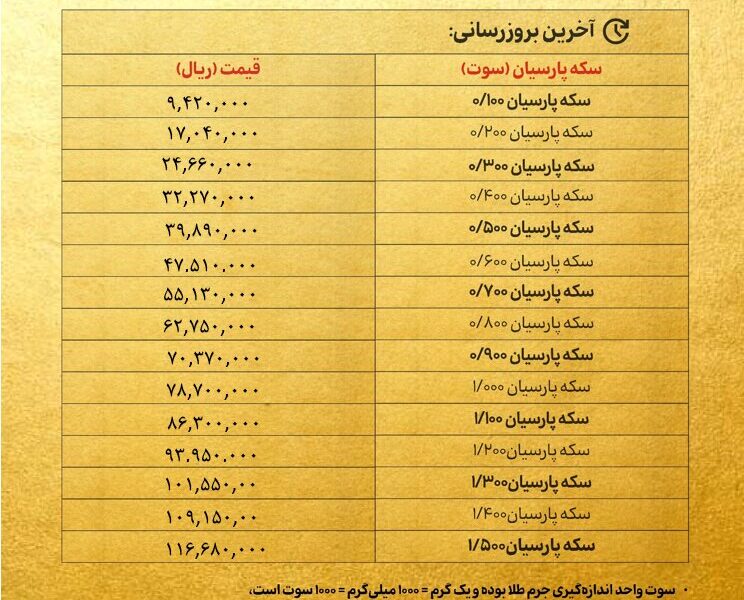 آخرین بروزرسانی:
سکه پارسیان (سوت) قیمت (ریال)
سکه پارسیان ۰/۱۰۰ ۹,۴۲۰,۰۰۰
سکه پارسیان ۰/۲۰۰ ۱۷,۰۴۰,۰۰۰
سکه پارسیان ۰/۳۰۰ ۲۴,۶۶۰,۰۰۰
سکه پارسیان ۰/۴۰۰ ۳۲,۲۷۰,۰۰۰
سکه پارسیان ۰/۵۰۰ ۳۹,۸۹۰,۰۰۰
سکه پارسیان ۰/۶۰۰ ۴۷.۵۱۰.۰۰۰
سکه پارسیان ۰/۷۰۰ ۵۵,۱۳۰,۰۰۰
سکه پارسیان ۰/۸۰۰ ۶۲,۷۵۰,۰۰۰
سکه پارسیان ۰/۹۰۰ ۷۰,۳۷۰,۰۰۰
سکه پارسیان ۱/۰۰۰ ۷۸,۷۰۰,۰۰۰
سکه پارسیان ۱/۱۰۰ ۸۶,۳۰۰,۰۰۰
سکه پارسیان۱/۲۰۰ ۹۳.۹۵۰.۰۰۰
سکه پارسیان۱/۳۰۰ ۱۰۱,۵۵۰,۰۰
سکه پارسیان۱/۴۰۰ ۱۰۹,۱۵۰,۰۰
سکه پارسیان۱/۵۰۰ ۱۱۶,۶۸۰,۰۰۰
· سوت واحد اندازه‌گیری جرم طلا بوده و یک گرم = ۱۰۰۰ میلی‌گرم = ۱۰۰۰ سوت است،